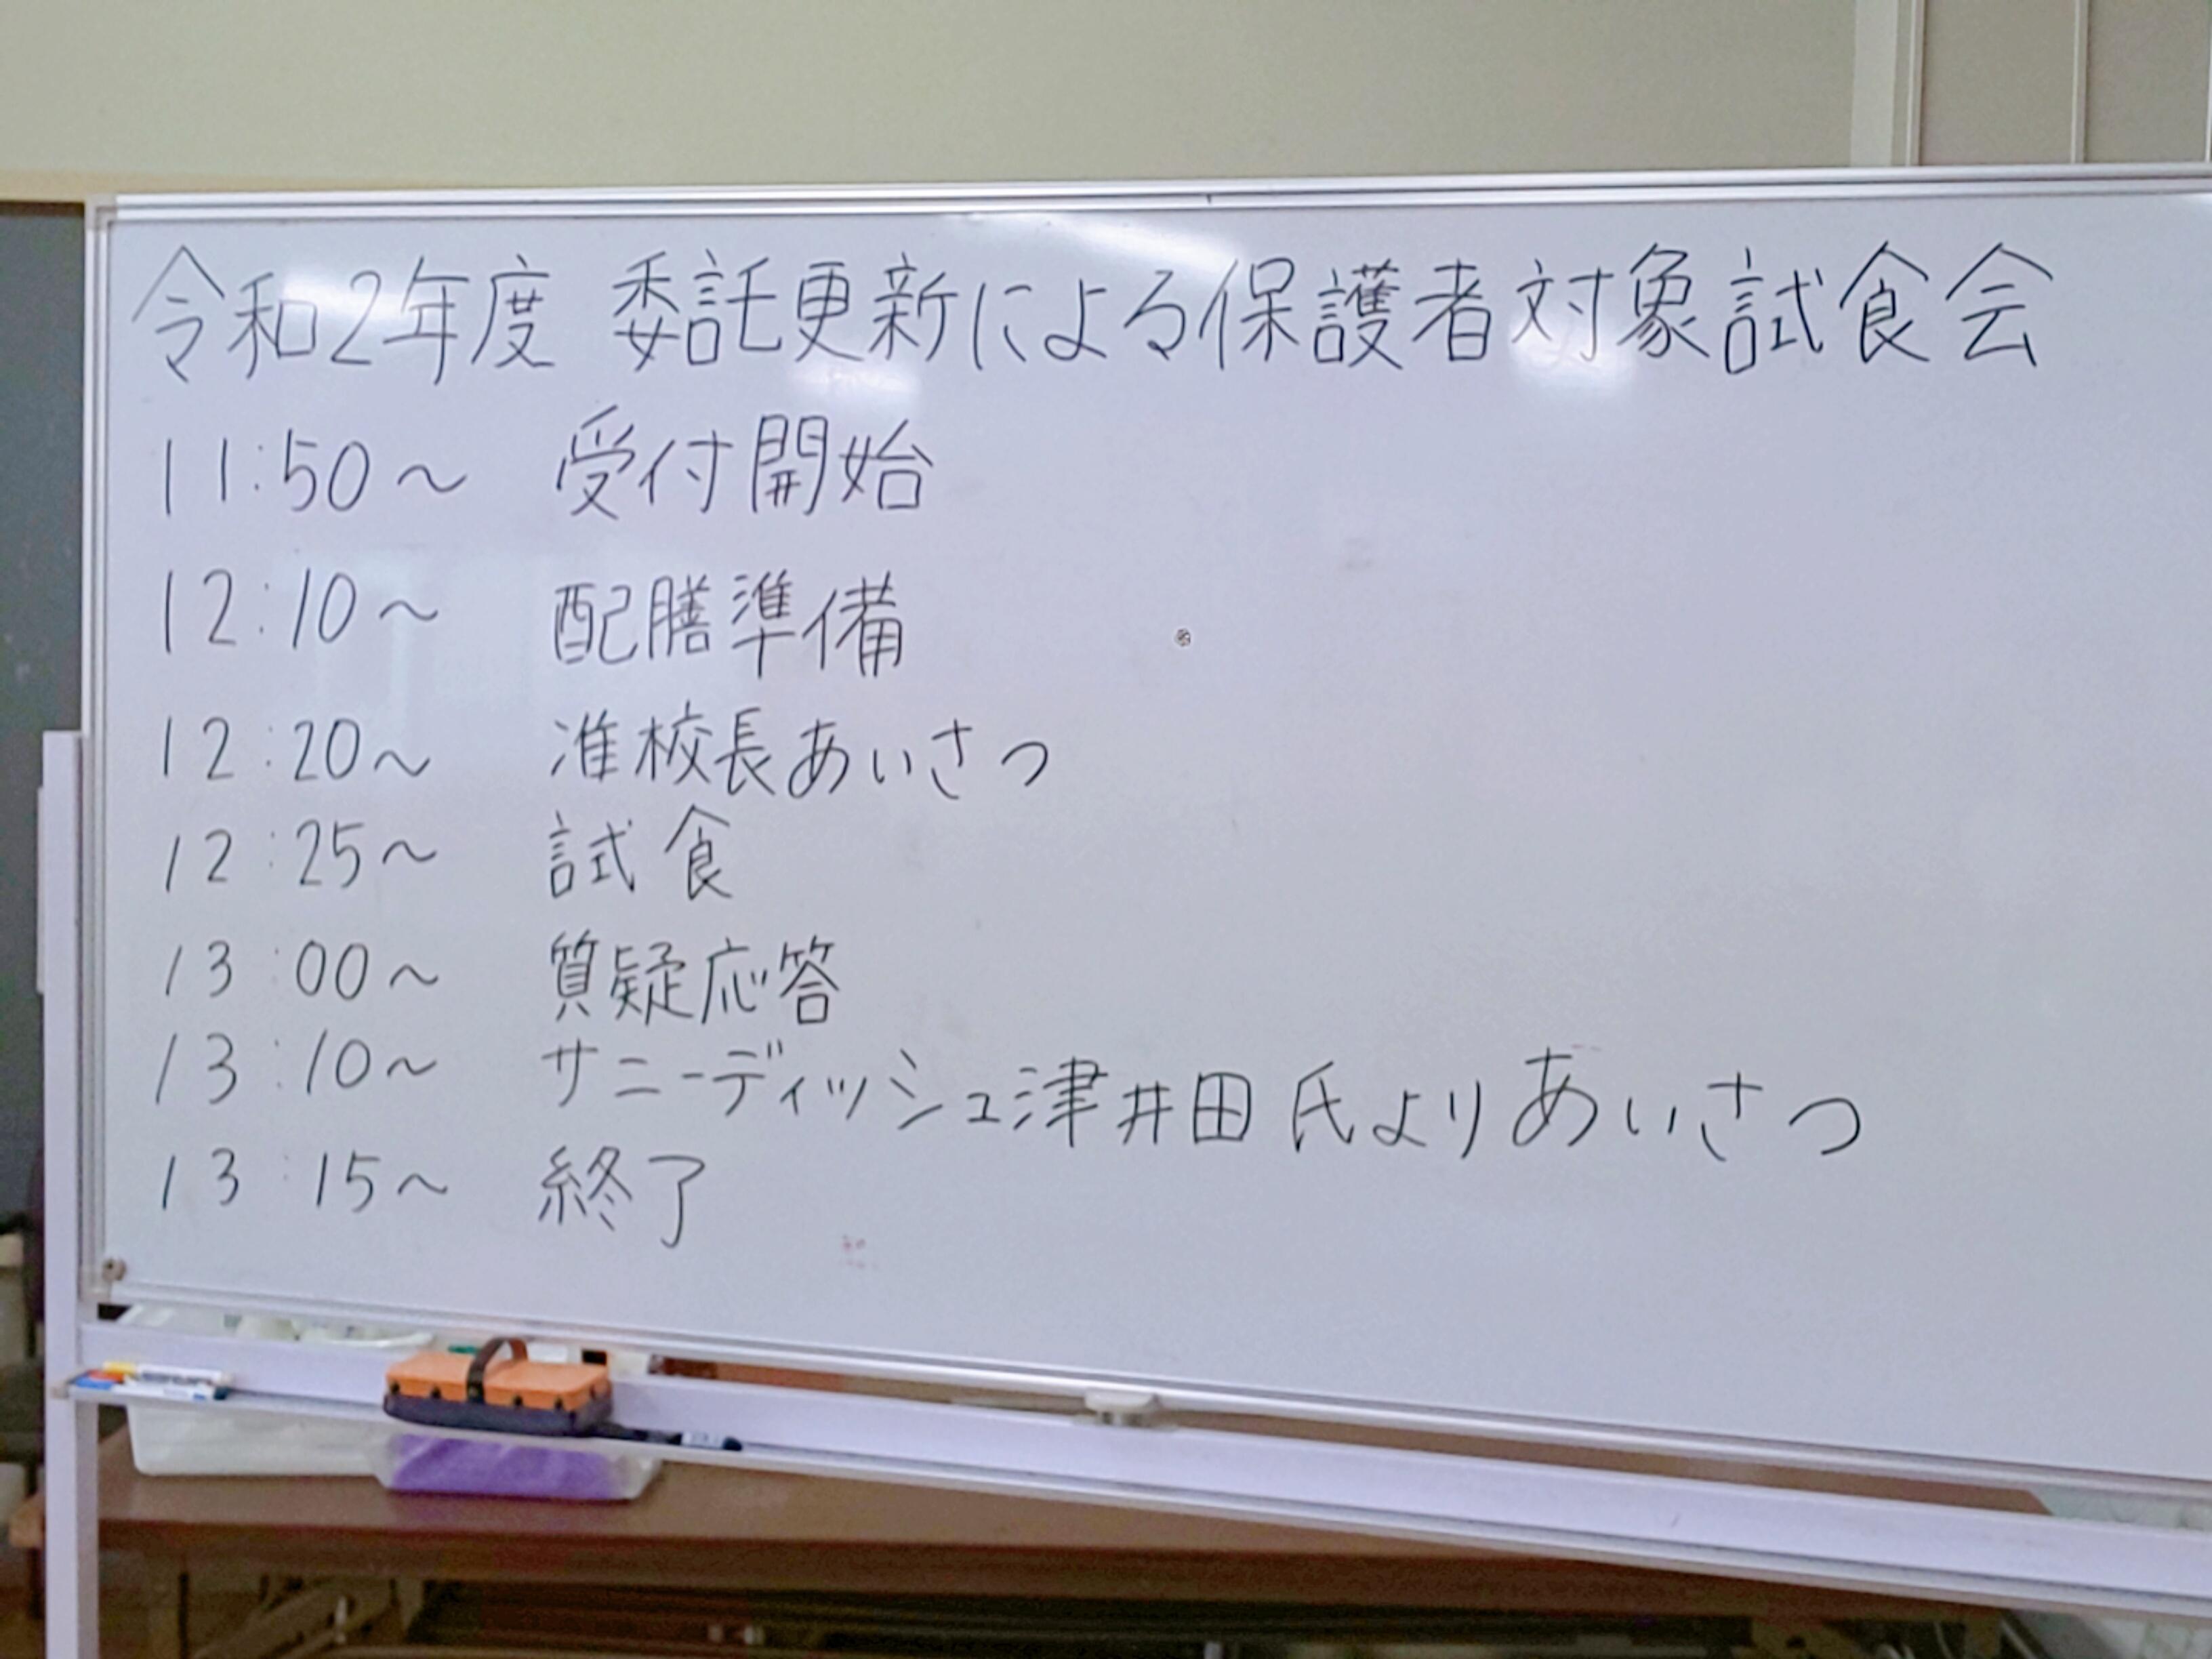 令和2年度 委託更新による保護者対象試食会
11:50〜 受付開始
12:10〜 配膳準備
12:20〜 准校長あいさつ
12:25〜 試食
13:00〜 質疑応答
13:10〜 サニーディッシュ津井田氏よりあいさつ
13:15〜 終了